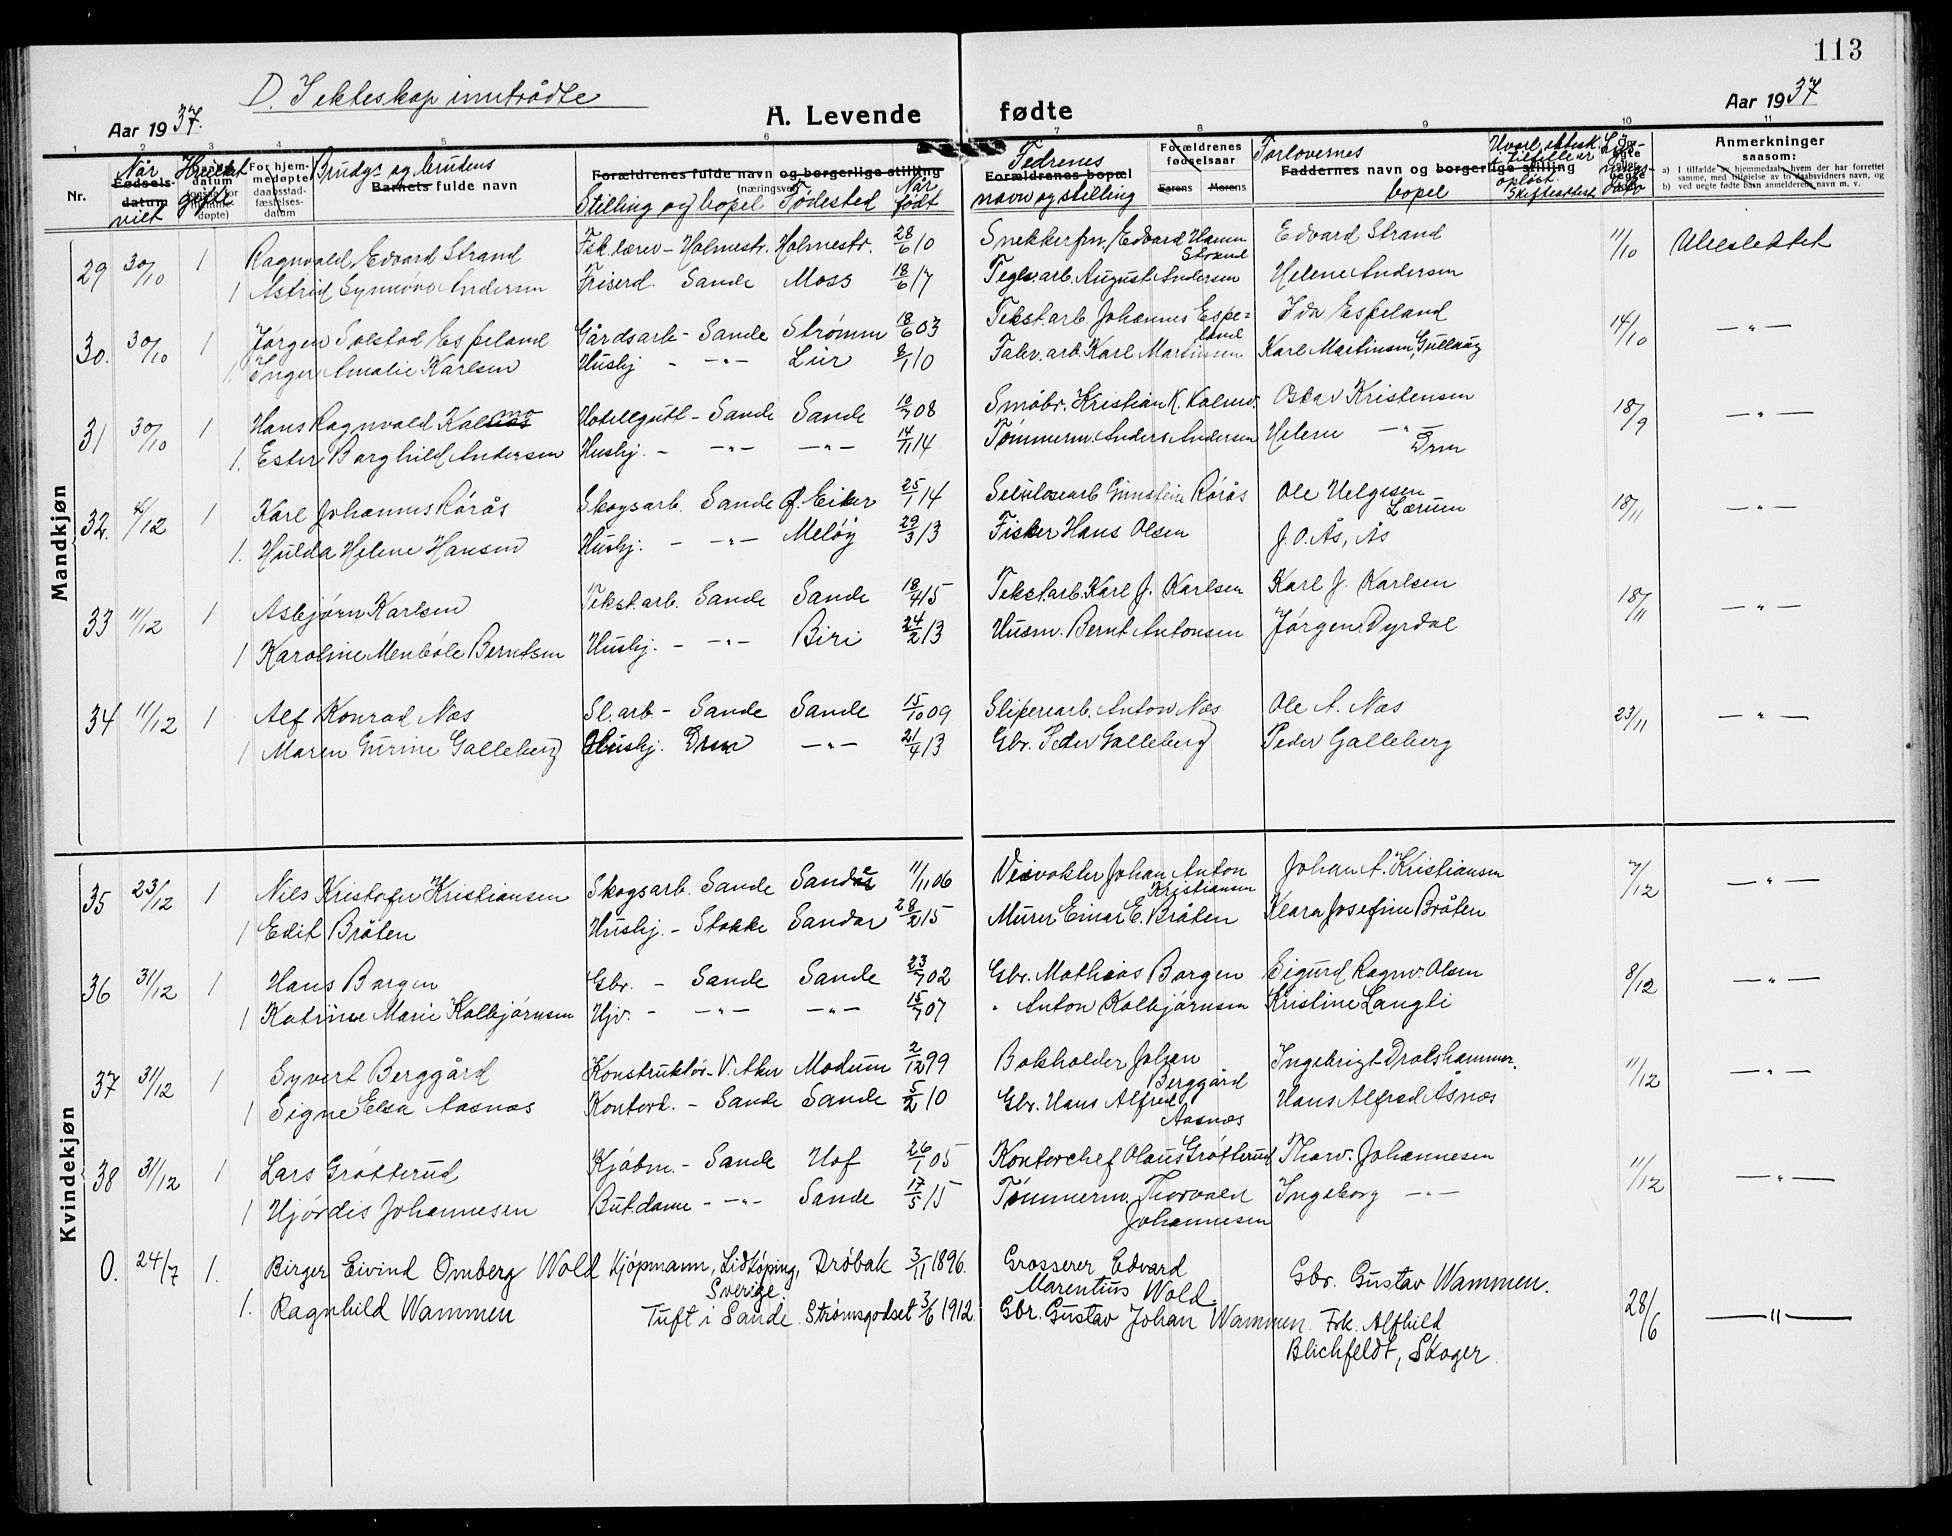 113
D. I ekteskap inntrådte
Aar 1937.
A. Levende fødte
Aar 1937
1 2 3 4 5 6 7 8 9 10 11
Nr.
Når viet
Fødsels-datum
Hvilket gift
For hjem-medøpte daabsstad-fæstelses-datum
Brudgs og brudens
Barnets fulde navn
Forældrenes fulde navn og borgerlige stilling
(næringsvei)
Stilling og bopel Fødested Når født
Fedrenes
Forældrenes bopæl
navn og stilling
Forældrenes fødselsaar
Farens Morens
Forlovernes
Faddernes navn og borgerlige stilling
bopel
Anmerkninger
saasom:
a) I tilfælde av hjemmedaab, hvem der har forrettet samme, med tilføielse av to daabsvidners navn, og
b) ved uegte fødte barn anmelderens navn m. v.
Mandkjøn
29 30/10 1 Ragnvald Edvard Strand Fsk.lærer - Holmestr. Holmestr. 28/6 10 Snekkerfm. Edvard Hamm Strand Edvard Strand 11/10 Uteslettet
1 Astrid Synnøve Andersen Friserd. Sande Moss 18/6 17 Teglv.arb. August Andersen Helene Andersen
30. 30/10 1 Jørgen Solstad Espeland Gårdsarb - Sande Strømm 18/6 03 Tekst.arb Johannes Espeland Ida Espeland 14/10 —"—
1. Inger Amalie Karlsen Hushj - —"— Lier 8/1 10 Fabr. arb. Karl Martinsen Karl Martinsen, Gullaug
31 30/10 1 Hans Ragnvald Kalmo Hotellgutt - Sande Sande 10/7 08 Småbr. Kristian K. Kalmo. Oskar Kristensen 18/9 —"—
1. Ester Borghild Andersen Hushj. - —"— —"— 14/11 14 Tømmerm. Anders Andersen Helene —"— Drm
32. 4/12 1 Karl Johannes Rørås Skogsarb. Sande Ø. Eiker 25/1 14 Celulosearb Gunstein Rørås Ole Helgesen Lærum 18/11 —"—
1. Hulda Helene Hansen Hushj. - —"— Meløy 29/3 13 Fisker Hans Olsen J. O. Ås, Ås
33 11/12 1 Asbjørn Karlsen Tekst.arb. Sande Sande 18/4 15 Tekst.arb. Karl J. Karlsen Karl J. Karlsen 18/11 —"—
1 Karoline Menbøle Berntsen Hushj. - —"— Biri 24/2 13 Husm. Bernt Antonsen Jørgen Dyrdal
34 11/12 1 Alf Konrad Næs Sl.arb - Sande Sande 15/10 09 Sliperiarb. Anton Næs Ole A. Næs 23/11 —"—
1 Maren Gurine Galleberg Hushj. Drm —"— 21/4 13 Gbr. Peder Galleberg Peder Galleberg
Kvindekjøn
35 23/12 1 Nils Kristofer Kristiansen Skogsarb. Sande Sande 11/11 06 Veivokter Johan Anton Kristiansen Johan A. Kristiansen 7/12 —"—
1 Edit Bråten Hushj. - Stokke Sandar 28/2 15 Murer Einar E. Bråten Klara Josefine Bråten
36 31/12 1 Hans Borgen Gbr. - Sande Sande 23/7 02 Gbr. Mathias Borgen Sigurd Ragnv. Olsen 8/12 —"—
1 Katrine Marie Kolbjørnsen Hjv. - —"— —"— 15/7 07 " Anton Kolbjørnsen Kristine Langli
37 31/12 1 Syvert Berggård Konstruktør - V. Aker Modum 2/12 99 Bokholder Johan Berggård Ingebrigt Dralshammer. 11/12 —"—
1 Signe Elsa Aasnæs Kontord. - Sande Sande 5/2 10 Gbr. Hans Alfred Aasnæs Hans Alfred Åsnæs
38 31/12 1 Lars Grøtterud Kjøbm. - Sande Hof 26/1 05 Kontorchef Olaus Grøtterud Thorv. Johannesen 11/12 —"—
1 Hjørdis Johannesen But.dame - —"— Sande 17/5 15 Tømmerm. Thorvald Johannesen Ingeborg —"—
0. 24/7 1. Birger Eivind Omberg Wold Kjøpmann, Lidköping, Sverige. Drøbak 3/11 1896. Grosserer Edvard Marentius Wold Gbr. Gustav Wammen. 28/6 —"—
1. Ragnhild Wammen Tuft i Sande. Strømsgodset 3/6 1912. Gbr. Gustav Johan Wammen. Frk. Alfhild Blichfeldt, Skoger.